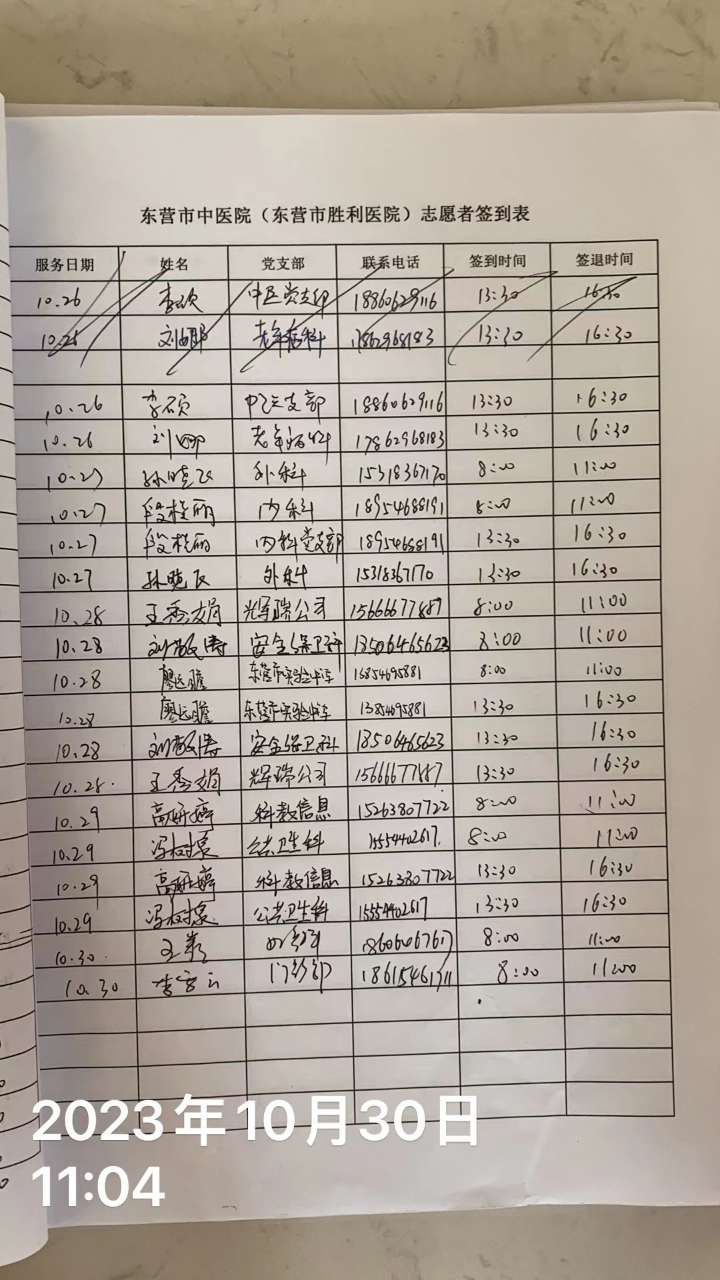 东营市中医院（东营市胜利医院）志愿者签到表
服务日期 姓名 党支部 联系电话 签到时间 签退时间
10.26 李硕 中医党支部 18860629116 13:30 16:30
10.26 刘娜 老年病科 17862968183 13:30 16:30
10.26 李硕 中医支部 18860629116 13:30 16:30
10.26 刘娜 老年病科 17862968183 13:30 16:30
10.27 孙晓飞 外科 15318367170 8:00 11:00
10.27 段桂丽 内科 18954688191 8:00 11:00
10.27 段桂丽 内科党支部 18954688191 13:30 16:30
10.27 孙晓飞 外科 15318367170 13:30 16:30
10.28 王秀娟 辉瑞公司 15666677887 8:00 11:00
10.28 刘敬涛 安全保卫科 13506465623 8:00 11:00
10.28 廖远瞻 东营市实验中学 13854695881 8:00 11:00
10.28 廖远瞻 东营市实验中学 13854695881 13:30 16:30
10.28 刘敬涛 安全保卫科 13506465623 13:30 16:30
10.28. 王秀娟 辉瑞公司 15666677887 13:30 16:30
10.29 高妍婷 科教信息 15263807722 8:00 11:00
10.29 冯树 公共卫生科 15554402617. 8:00 11:00
10.29 高妍婷 科教信息 15263807722 13:30 16:30
10.29 冯树 公共卫生科 15554402617 13:30 16:30
10.30. 王 18606067617 8:00 11:00
10.30 李 门诊部 18615461311 8:00 11:00
2023年10月30日
11:04